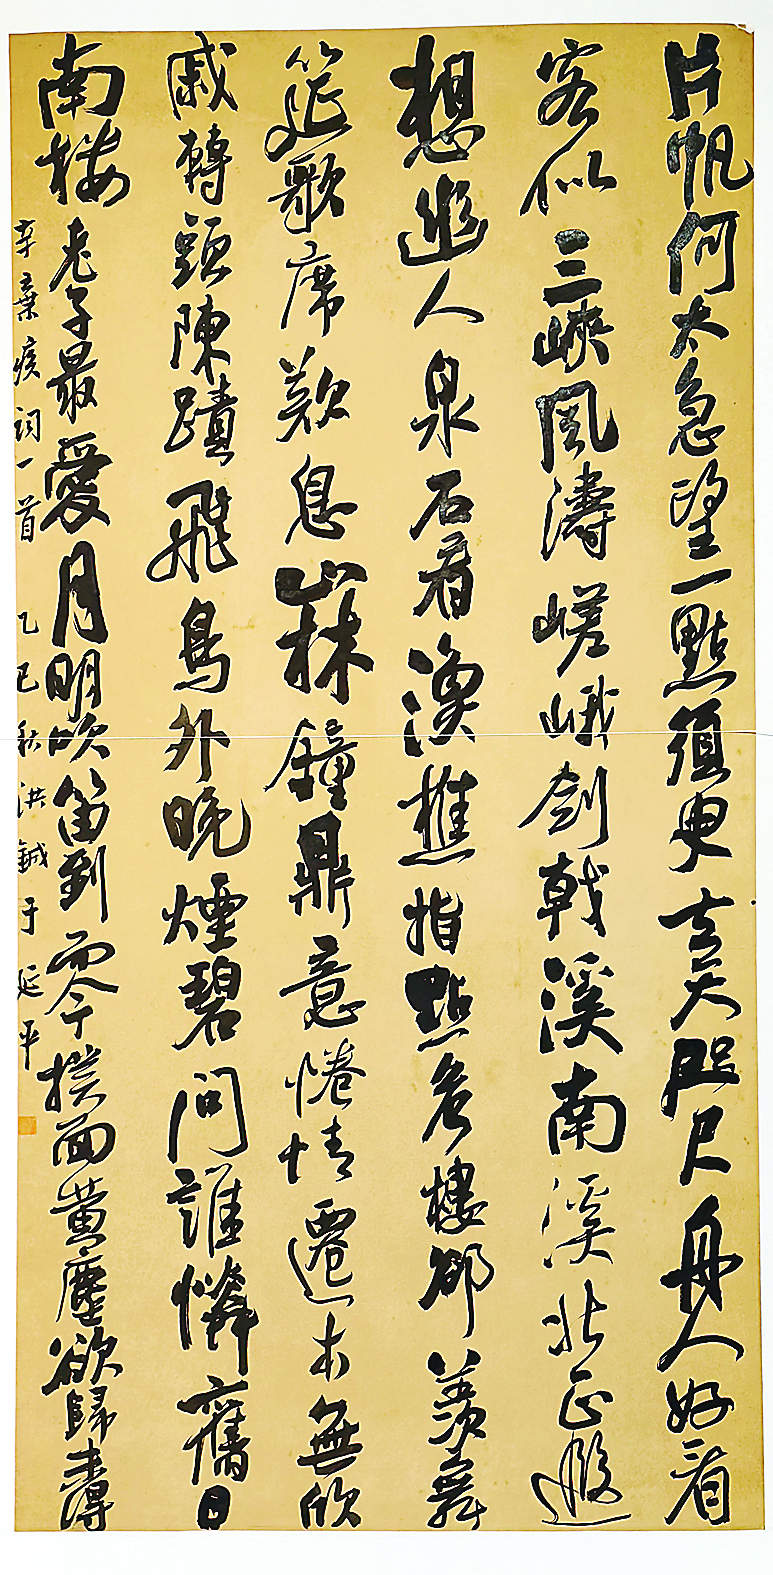 片帆何太急望一點須臾去天咫尺舟人好看
客似三峽風濤嵯峨劍戟溪南溪北正遐
想幽人泉石看漁樵指點危樓卻羨舞
筵歌席歎息山林鐘鼎意惓情遷本無欣
戚轉頭陳蹟飛鳥外晚煙碧問誰憐舊日
南樓老子最愛月明吹笛到而今撲面黃塵欲歸未得
辛棄疾詞一首 乙巳秋洪鋮于延平